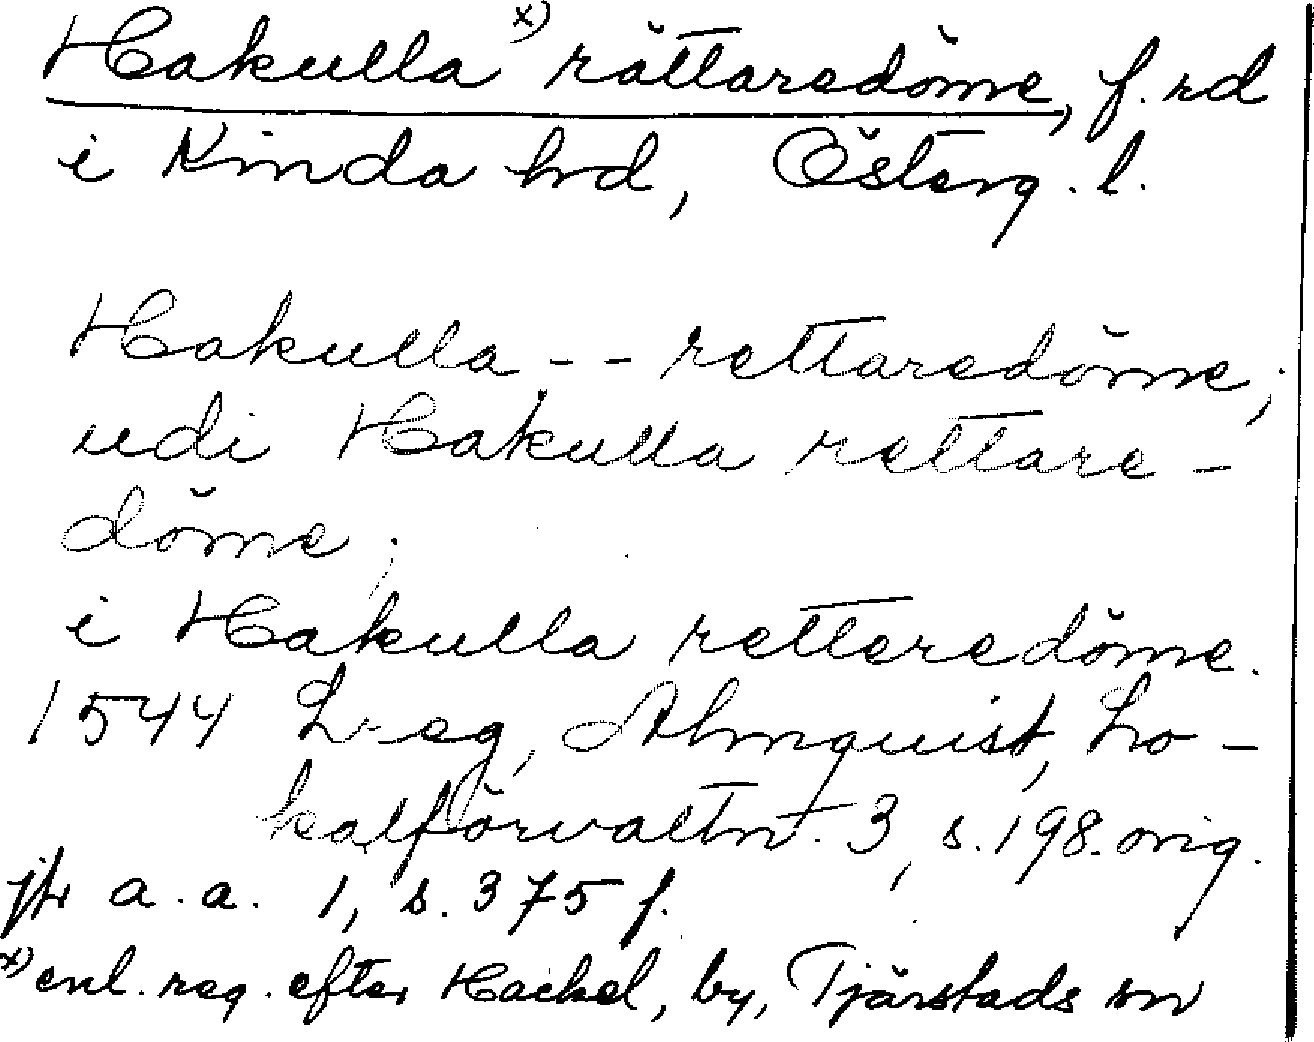 Hakulla x) rättaredöme, f. rd
i Kinda hd, Österg. l.
Hakulla - - rettaredöme;
udi Hakulla rettare-
döme;
i Hakulla retteredöme.
1544 Lreg, Almquist, Lo-
kalförvaltn. 3, s. 198. orig.
jfr a. a. 1, s. 375 f.
x) enl. reg. efter Hackel, by, Tjärstads sn